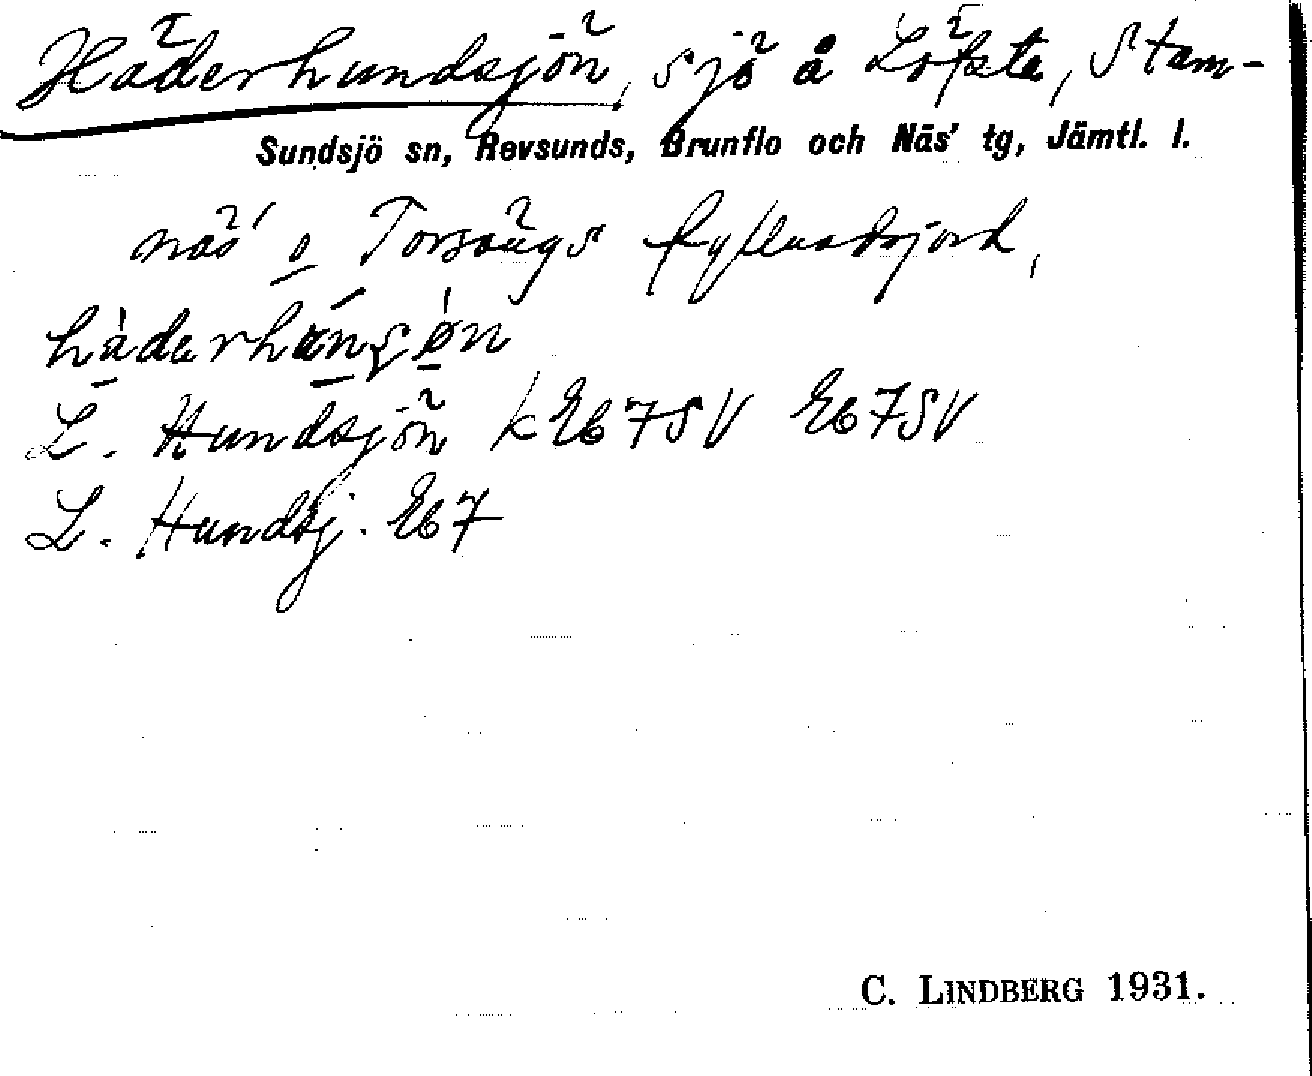 Häderhundsjön, sjö å Löfsta, Stam-
Sundsjö sn, Revsunds, Brunflo och Näs' tg, Jämtl. l.
näs' o Torsängs fyllnadsjord,
L. Hundsjön k Eb7SV Eb7SV
L. Hundsj. Eb7
C. LINDBERG 1931.